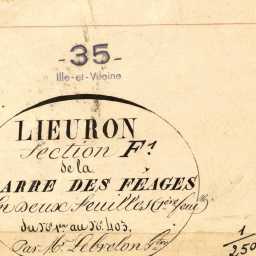 -35-
Ille-et-Vilaine
LIEURON
Section F¹
de la
ARRE DES FÉAGES
En deux feuilles (1ère feuille)
du N° 1er au N° 403.
Par Mr Lebreton Gtre
1
250